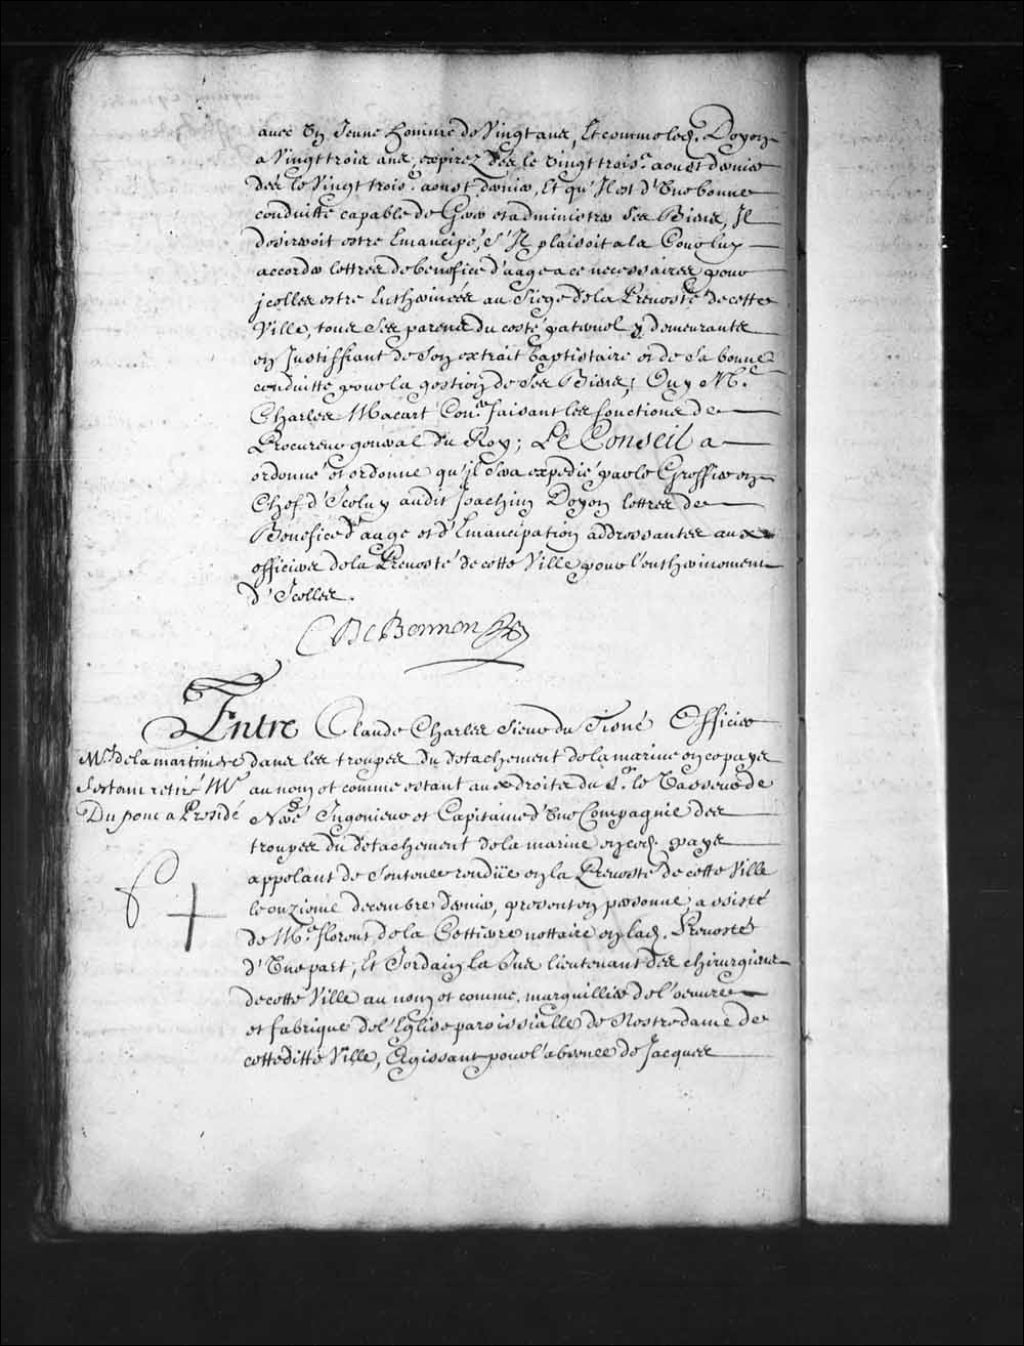 avec Un Jeune homme de Vingt ans, Et comme led. Doyon
a Vingt trois ans, expirez dès le vingt trois.e aoust dernier
dès le Vingt trois.e aoust dernier, Et qu'Il est d'Une bonne
conduitte capable de Gerer et administrer Ses Biens, Il
desireroit estre Emancipé, S'Il plaisoit a la Cour luy
accorder lettres de benefice d'aage a ce necessaires pour
jcelles estre Entherinées au Siege de la Prevosté de cette
Ville, tous Ses parens du costé paternel y demeurants
en Justiffiant de Son extrait baptistaire et de Sa bonne
conduitte pour la gestion de Ses Biens; Ouy M.e
Charles Macart Con.er faisant les fonctions de
Procureur general du Roy; Le Conseil a
ordonné et ordonne qu'jl Sera expedié par le Greffier en
Chef d'Iceluy audit Joachim Doyon lettres de
Benefice d'aage et d'Emancipation addressantes aux
officiers de la Prevosté de cette Ville pour l'entherinement
d'Icelles.
Entre Claude Charles Sieur du Tisné Officier
M.r de la martiniere
Sestant retiré M.r
Du pont a Presidé
dans les troupes du detachement de la marine en ce pays
au nom et comme estant aux droits du S.r le Vasseur de
Neré Ingenieur et Capitaine d'Une Compagnie des
troupes du detachement de la marine en ced. pays
appelant de Sentence rendüe en la Prevosté de cette Ville
le onzieme decembre dernier, present en personne, assisté
de M.e florent de la Cettiere nottaire en lad. Prevosté
d'Une part, Et Jordain la Jus lieutenant des chirurgiens
de cette Ville au nom et comme marguillier de l'oeuvre
et fabrique de l'Eglise paroissialle de Nostre dame de
cetteditte Ville, Agissant pour l'absence de Jacques